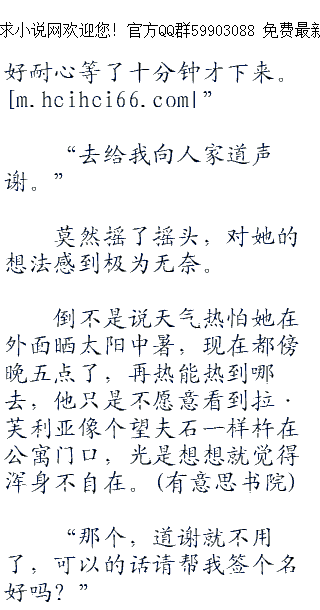 求小说网欢迎您！官方QQ群59903088 免费最新
好耐心等了十分钟才下来。
[m.hcihci66.com|”
“去给我向人家道声
谢。”
莫然摇了摇头，对她的
想法感到极为无奈。
倒不是说天气热怕她在
外面晒太阳中暑，现在都傍
晚五点了，再热能热到哪
去，他只是不愿意看到拉·
芙利亚像个望夫石一样杵在
公寓门口，光是想想就觉得
浑身不自在。(有意思书院)
“那个，道谢就不用
了，可以的话请帮我签个名
好吗？”